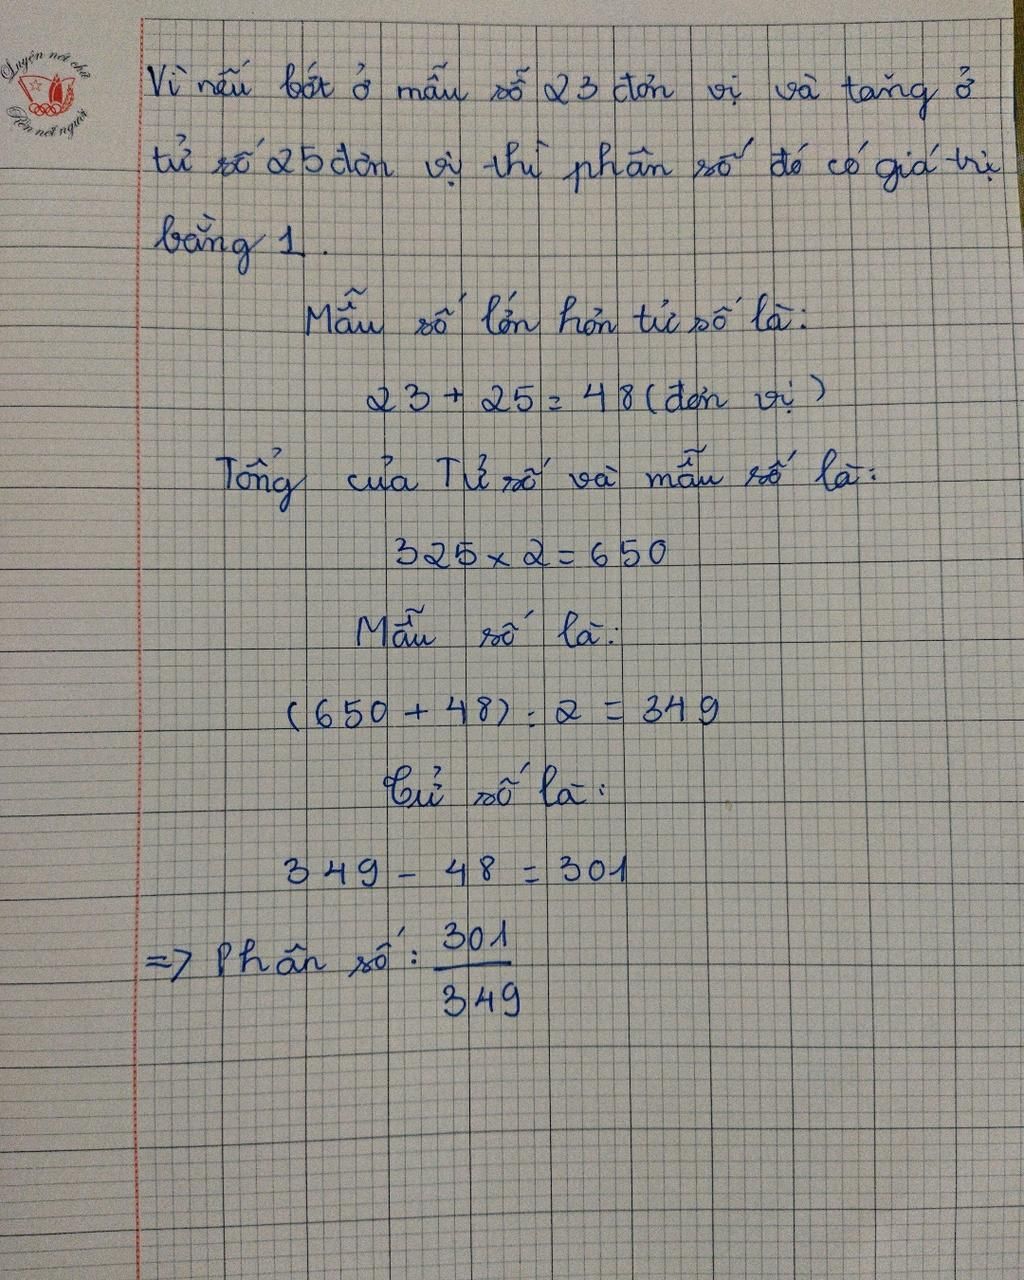 Luyện nét chữ
Rèn nết người
Vì nếu bớt ở mẫu số 23 đơn vị và tăng ở
tử số 25 đơn vị thì phân số đó có giá trị
bằng 1.
Mẫu số lớn hơn tử số là:
23 + 25 = 48 (đơn vị)
Tổng của Tử số và mẫu số là:
325 x 2 = 650
Mẫu số là:
(650 + 48) : 2 = 349
Tử số là:
349 - 48 = 301
=> Phân số: 301
349